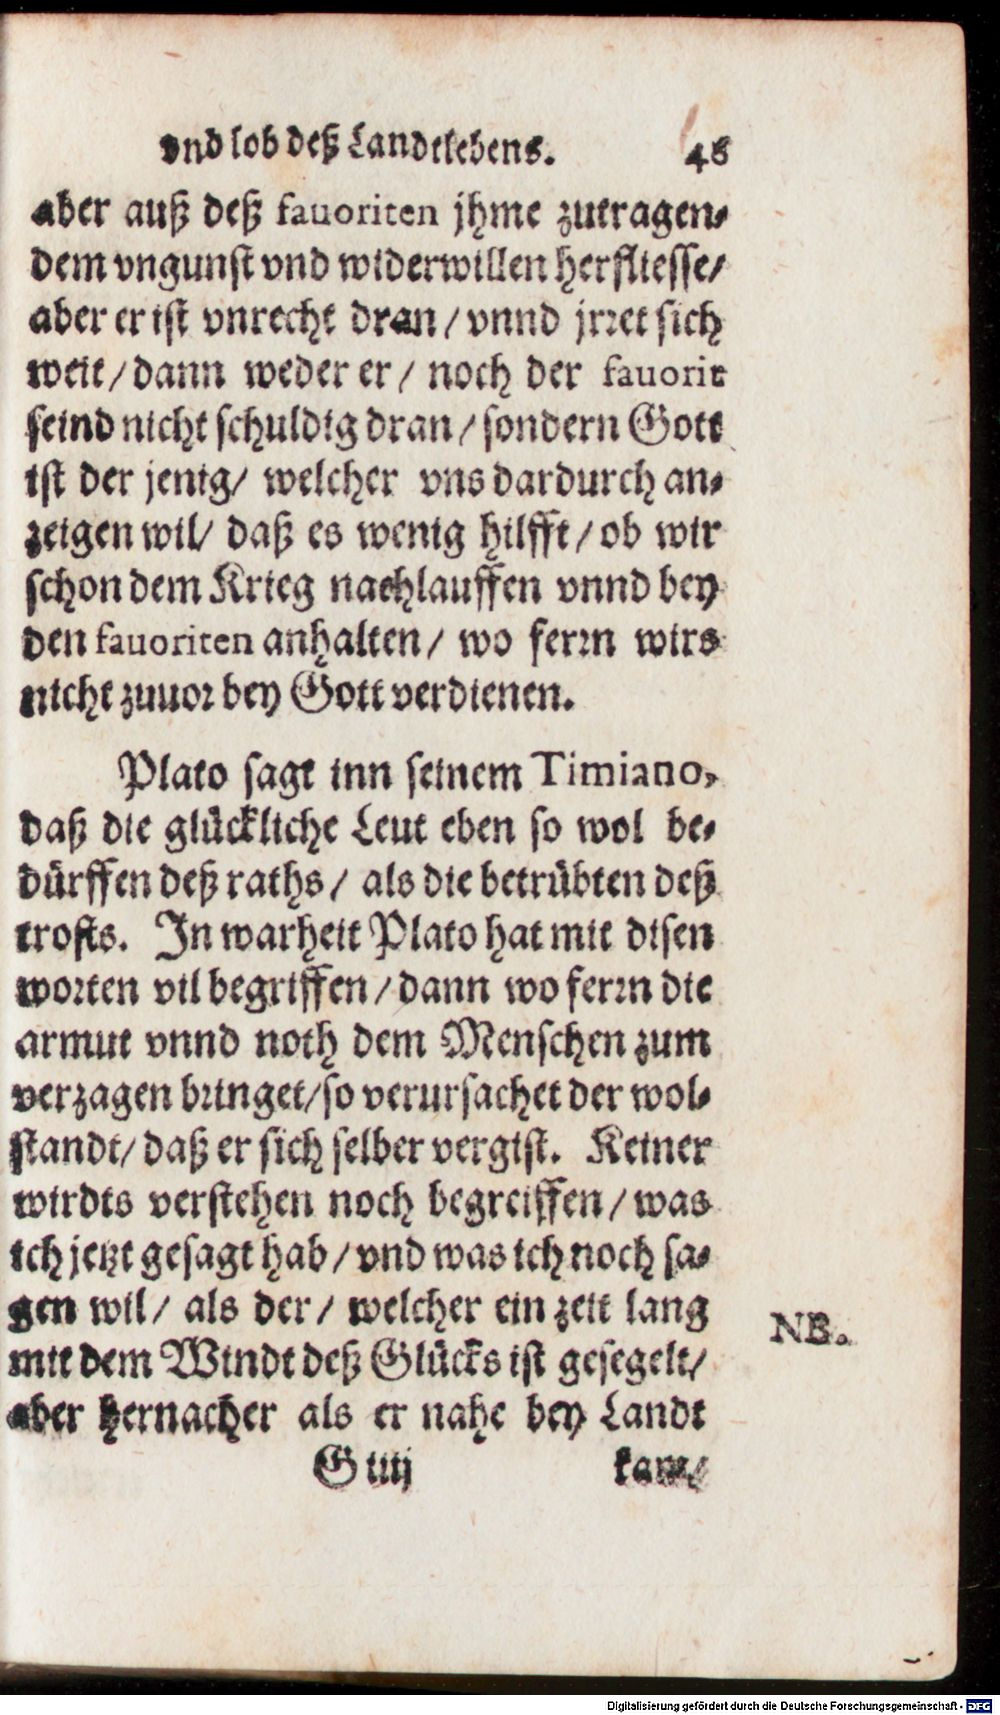 vnd lob deß Landtlebens. 48
aber auß deß fauoriten jhme zutragen-
dem vngunst vnd widerwillen herfliesse/
aber er ist vnrecht dran / vnnd jrret sich
weit / dann weder er / noch der fauorit
seind nicht schuldig dran / sondern Gott
ist der jenig / welcher vns dardurch an-
zeigen wil / daß es wenig hilfft / ob wir
schon dem Krieg nachlauffen vnnd bey
den fauoriten anhalten / wo ferrn wirs
nicht zuuor bey Gott verdienen.
Plato sagt inn seinem Timiano,
daß die glückliche Leut eben so wol be-
dürffen deß raths / als die betrübten deß
trosts. In warheit Plato hat mit disen
worten vil begriffen / dann wo ferrn die
armut vnnd noth dem Menschen zum
verzagen bringet / so verursachet der wol-
standt / daß er sich selber vergist. Keiner
wirdts verstehen noch begreiffen / was
ich jetzt gesagt hab / vnd was ich noch sa-
gen wil / als der / welcher ein zeit lang
NB.
mit dem Windt deß Glücks ist gesegelt /
aber hernacher als er nahe bey Landt
G iiij kam /
Digitalisierung gefördert durch die Deutsche Forschungsgemeinschaft - DFG